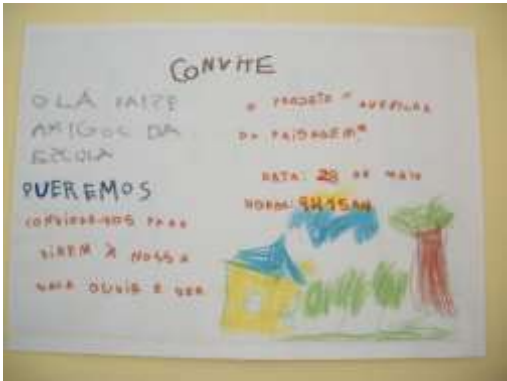 CONVITE
OLÁ
AMIGOS DA
ESCOLA
QUEREMOS
CONVIDAR-VOS PARA
VIREM À NOSSA
SALA OUVIR E VER
O PROJETO "
DA PAISAGEM"
DATA: 28 DE MAIO
HORA: 9H15M